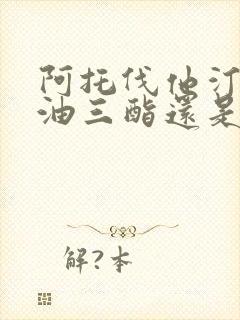 阿托伐他汀
油三酯還是
解?本